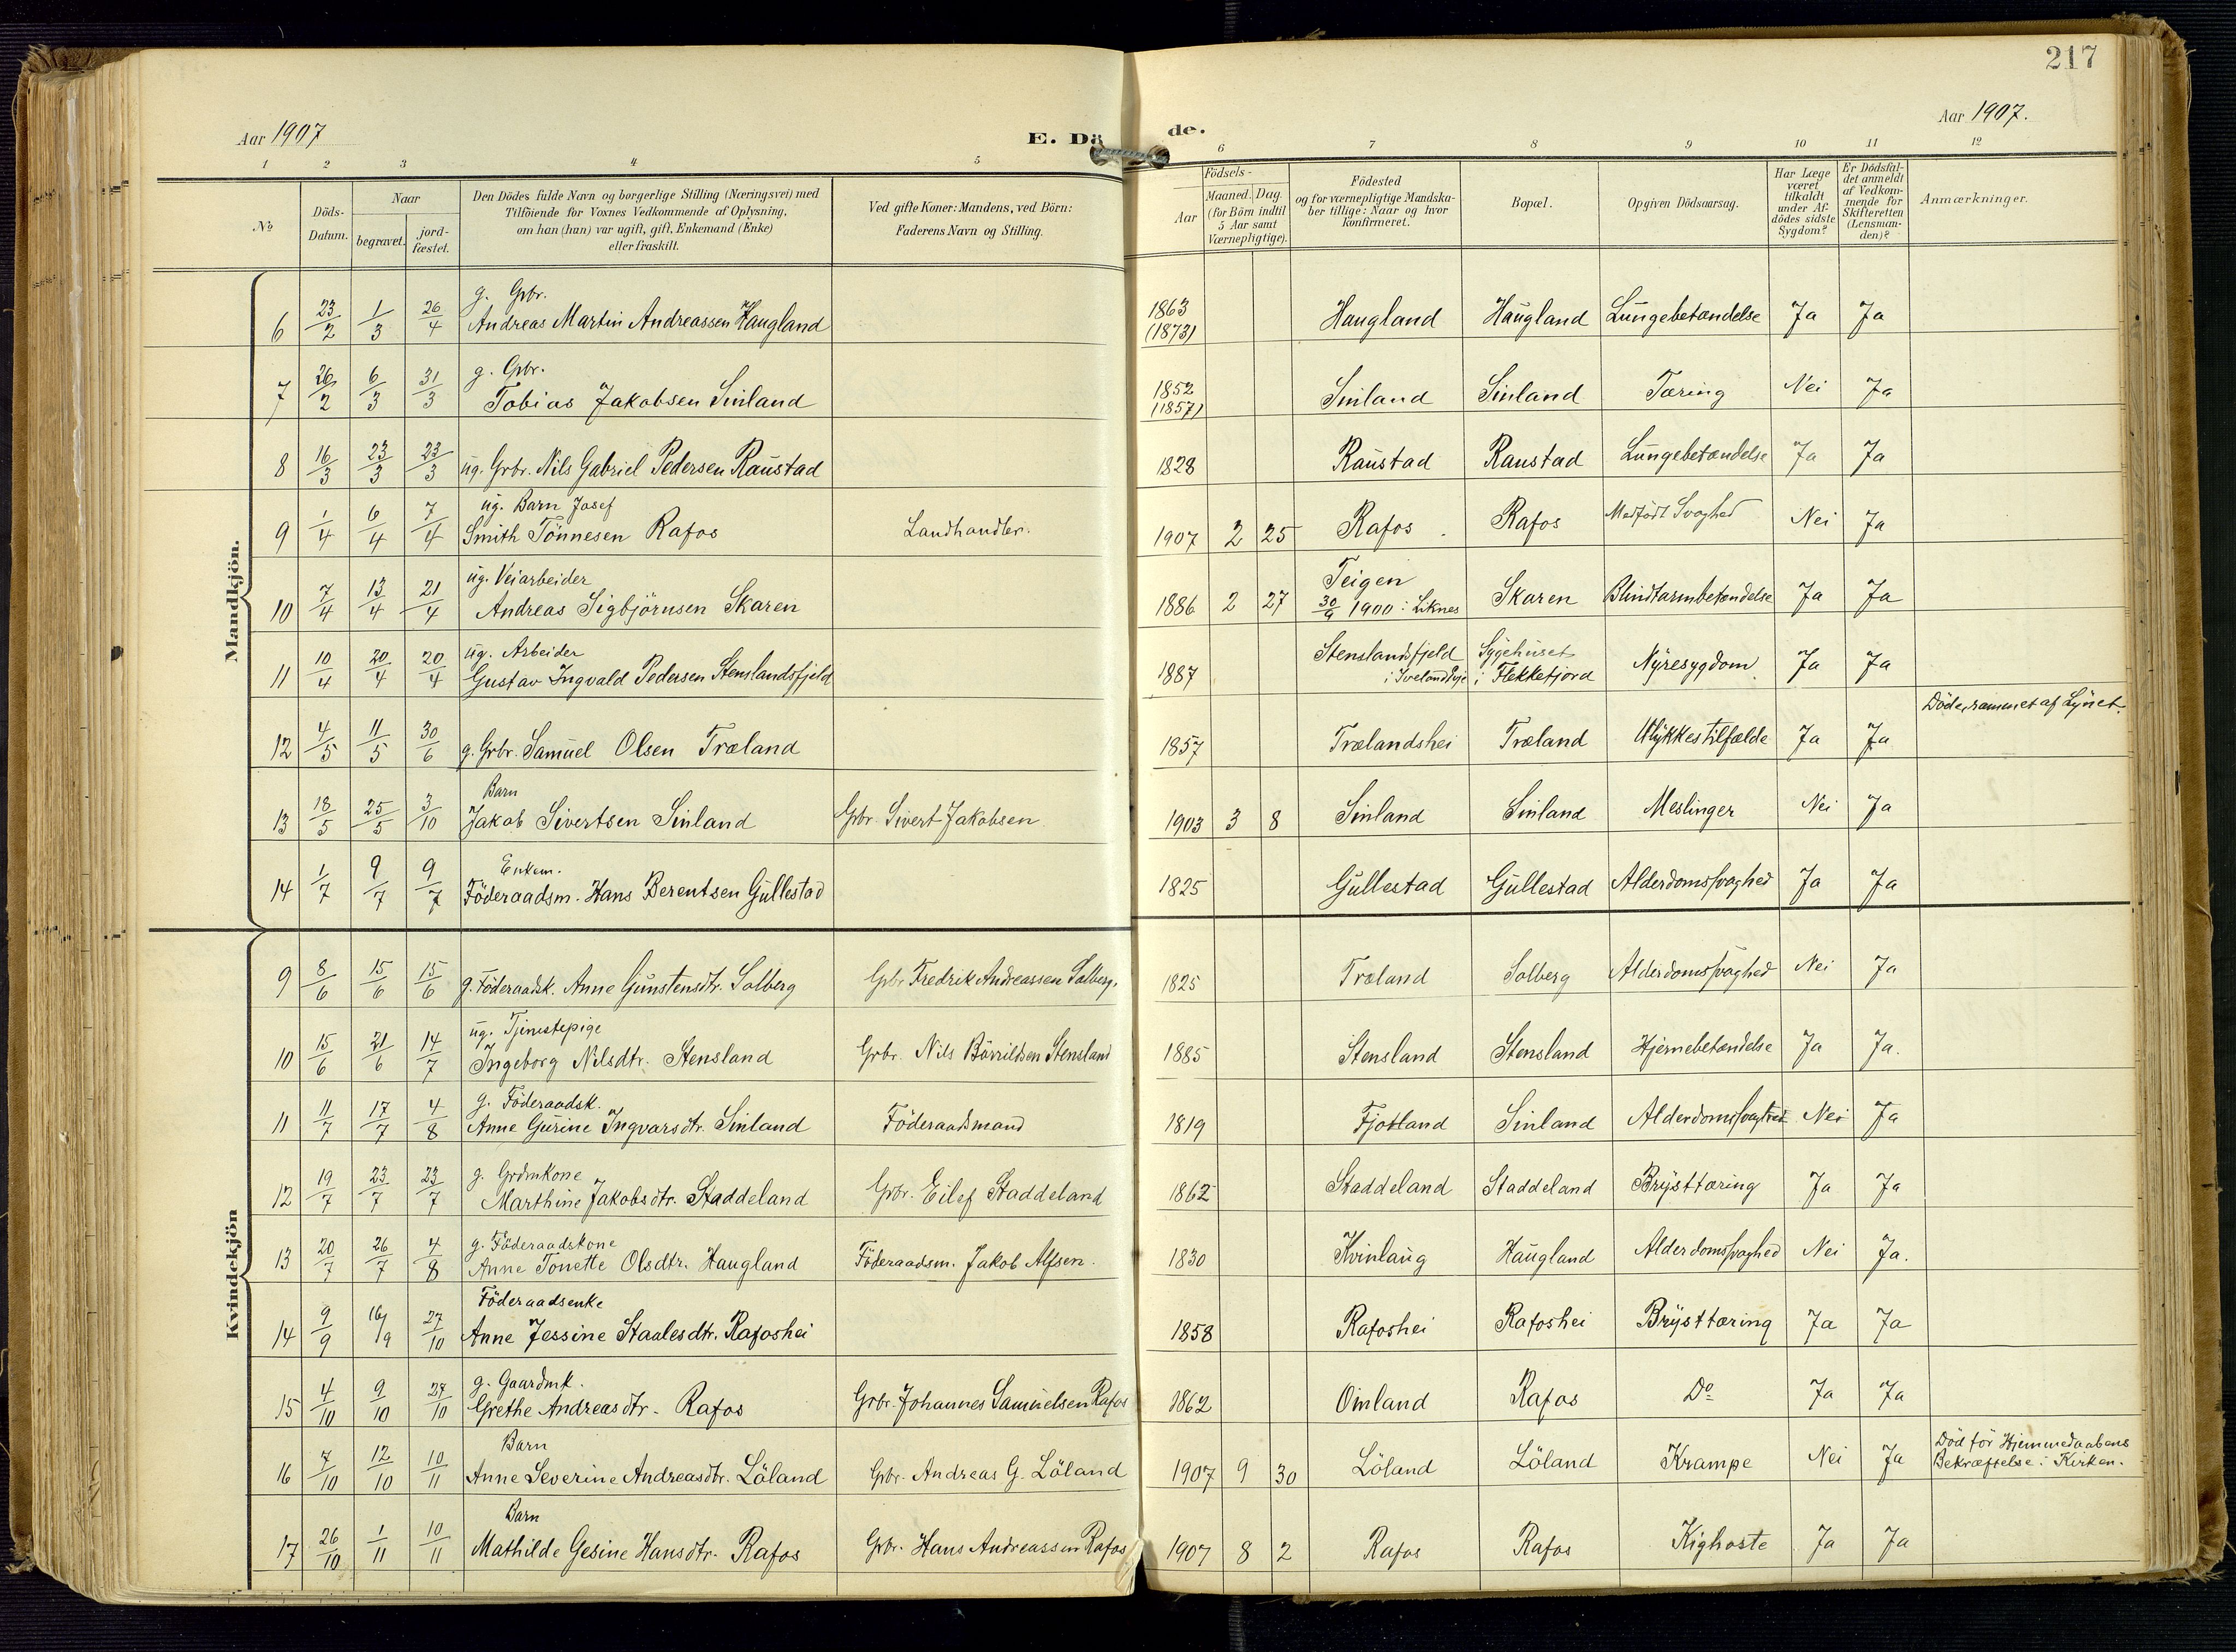 217
Aar 1907
E. Dö
de.
Aar 1907.
1 2 3 4 5 6 7 8 9 10 11 12
No
Döds-
Datum.
Naar
begravet.
jord-
fæstet.
Den Dödes fulde Navn og borgerlige Stilling (Næringsvei) med
Tilföiende for Voxnes Vedkommende af Oplysning,
om han (hun) var ugift, gift, Enkemand (Enke)
eller fraskilt.
Ved gifte Koner: Mandens, ved Börn:
Faderens Navn og Stilling.
Födsels-
Aar
Maaned. Dag.
(for Börn indtil
5 Aar samt
Værnepligtige).
Födested
og for værnepligtige Mandska-
ber tillige: Naar og hvor
konfirmeret.
Bopæl.
Opgiven Dödsaarsag.
Har Læge
været
tilkaldt
under Af-
dödes sidste
Sygdom?
Er Dödsfal-
det anmeldt
af Vedkom-
mende for
Skifteretten
(Lensman-
den)?
Anmærkninger.
Mandkjön.
g. Grbr.
6 23/2 1/3 26/4 Andreas Martin Andreassen Haugland 1863 (1873) Haugland Haugland Lungebetændelse Ja Ja
g. Grbr.
7 26/2 6/3 31/3 Tobias Jakobsen Sinland 1852 (1857) Sinland Sinland Tæring Nei Ja
8 16/3 23/3 23/3 ug. Grbr. Nils Gabriel Pedersen Raustad 1828 Raustad Raustad Lungebetændelse Ja Ja
ug. Barn Josef
9 1/4 6/4 7/4 Smith Tönnesen Rafos Landhandler. 1907 2 25 Rafos Rafos Medfödt Svaghed Nei Ja
ug. Veiarbeider
10 7/4 13/4 21/4 Andreas Sigbjörnsen Skaren 1886 2 27 Teigen 30/9 1900 i Liknes Skaren Blindtarmbetændelse Ja Ja
ug. Arbeider
11 10/4 20/4 20/4 Gustav Ingvald Pedersen Stenslandsfjeld 1887 Stenslandsfjeld i Sygehuset i Flekkefjord Nyresygdom Ja Ja
12 4/5 11/5 30/6 g. Grbr. Samuel Olsen Træland 1857 Trælandshei Træland Ulykkestilfælde Ja Ja Döde, rammet af Lynet.
Barn
13 18/5 25/5 3/10 Jakob Sivertsen Sinland Grbr. Sivert Jakobsen 1903 3 8 Sinland Sinland Meslinger Nei Ja
Enkem.
14 1/7 9/7 9/7 Föderaadsm. Hans Berentsen Gullestad 1825 Gullestad Gullestad Alderdomssvaghed Ja Ja
Kvindekjön
9 8/6 15/6 15/6 g. Föderaadsk. Anne Gunstensdtr. Solberg Grbr. Fredrik Andreassen Solberg. 1825 Træland Solberg Alderdomssvaghed Nei Ja
ug. Tjenestepige
10 15/6 21/6 14/7 Ingeborg Nilsdtr. Stensland Grbr. Nils Stensland 1885 Stensland Stensland Hjernebetændelse Ja Ja.
g. Föderaadsk.
11 11/7 17/7 4/8 Anne Gurine Ingvarsdtr. Sinland Föderaadsmand 1819 Fjotland Sinland Alderdomssvaghed Nei Ja
g. Grdmkone
12 19/7 23/7 23/7 Marthine Jakobsdtr. Staddeland Grbr. Eilef Staddeland 1862 Staddeland Staddeland Brysttæring Ja Ja
g. Föderaadskone
13 20/7 26/7 4/8 Anne Tonette Olsdtr. Haugland Föderaadsm. Jakob Alfsen. 1830 Kvinlaug Haugland Alderdomssvaghed Nei Ja.
Föderaadsenke
14 9/9 16/9 27/10 Anne Jessine Staalesdtr. Rafoshei 1858 Rafoshei Rafoshei Brysttæring Ja Ja
g. Gaardmk.
15 4/10 9/10 27/10 Grethe Andreasdtr. Rafos Grbr. Johannes Samuelsen Rafos 1862 Omland Rafos Do Ja Ja
Barn
16 7/10 12/10 10/11 Anne Severine Andreasdtr. Löland Grbr. Andreas G. Löland 1907 9 30 Löland Löland Krampe Nei Ja Död för Hjemmedaabens Bekræftelse i Kirken.
Barn
17 26/10 1/11 10/11 Mathilde Gesine Hansdtr. Rafos Grbr. Hans Andreassen Rafos 1907 8 2 Rafos Rafos Kighoste Ja Ja